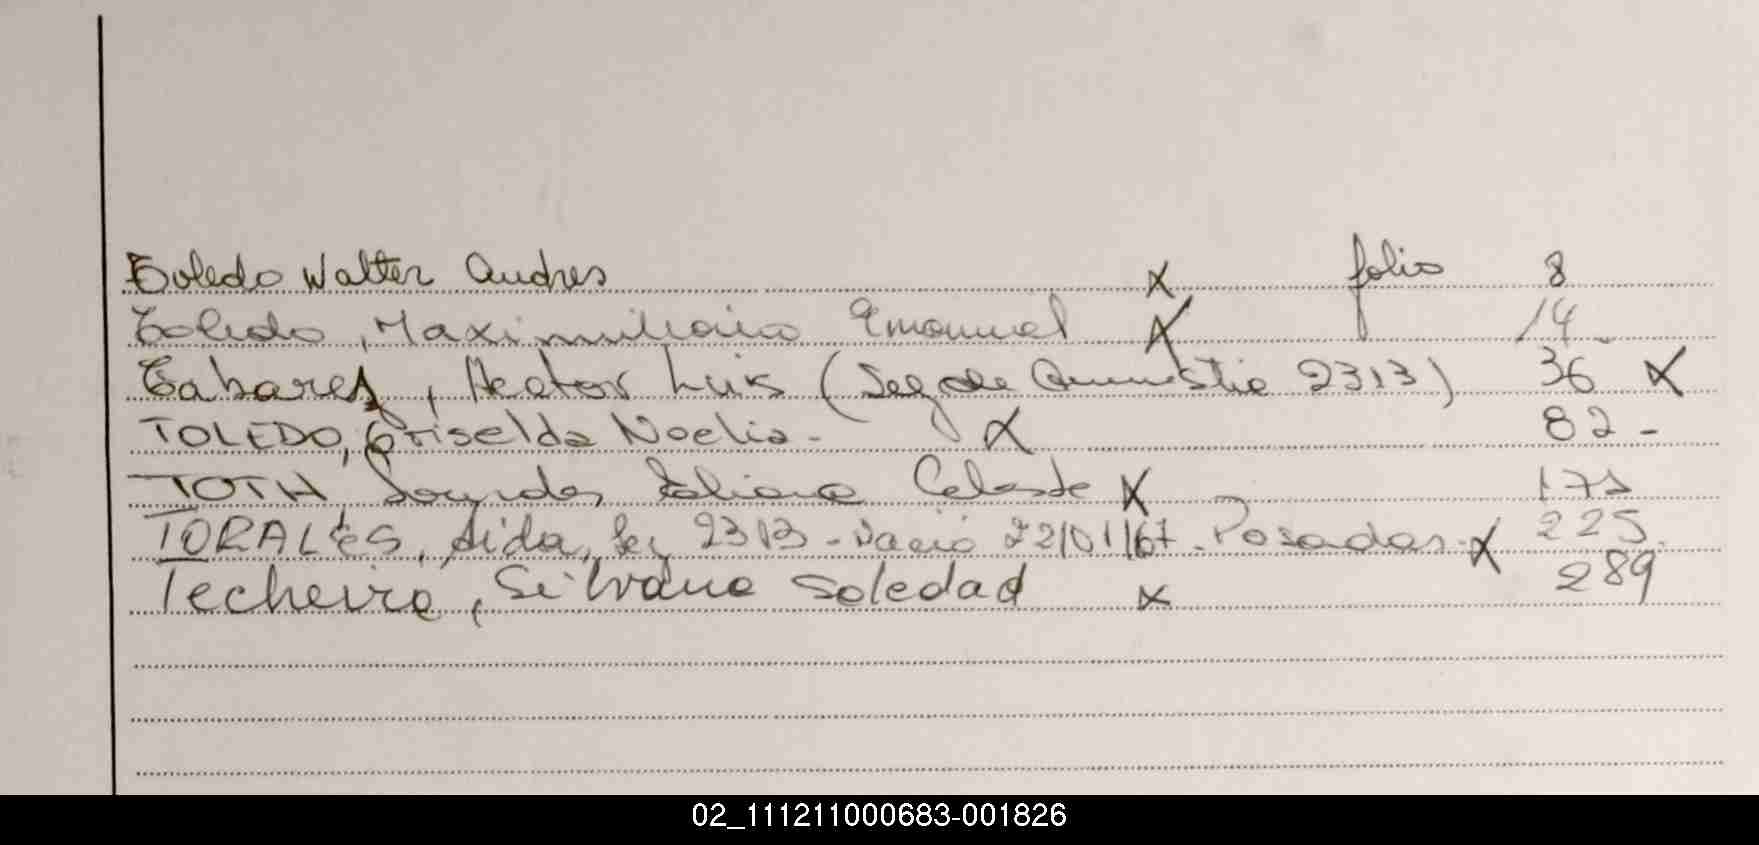 Toledo Walter Andres x folio 8
Toledo, Maximiliano Emanuel x 14
Tabarez, Hector Luis (Ley de Amnistia 2313) 36 x
TOLEDO, Griselda Noelia - x 82 -
TOTH Lourdes Celeste x 171
TORALES, Aida, Ley 2313 - Nació 22/01/67 - Posadas - x 225
Techeira, Silvana Soledad x 289
02_111211000683-001826